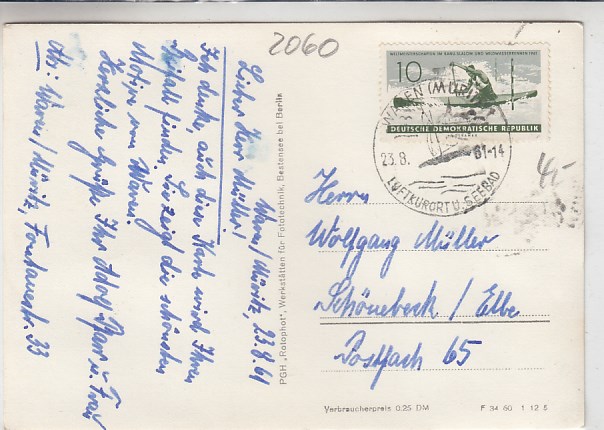 2060
Waren/Müritz, 23.8.61
Lieber Herr Müller!
Ich denke, auch diese Karte wird Ihren
Beifall finden. Sie zeigt die schönsten
Motive von Waren.
Herzliche Grüße Ihr Adolf u. Frau
Abs: Waren/Müritz, Fontanestr. 33
PGH „Rotophot", Werkstätten für Fototechnik, Bestensee bei Berlin
WELTMEISTERSCHAFTEN IM KANU-SLALOM UND WILDWASSERRENNEN 1961
10
DEUTSCHE DEMOKRATISCHE REPUBLIK
WAREN (MÜRITZ)
23.8. 61-14
LUFTKURORT U. SEEBAD
Herrn
Wolfgang Müller
Schönebeck / Elbe
Postfach 65
Verbraucherpreis 0,25 DM
F 34 60 1 12 5